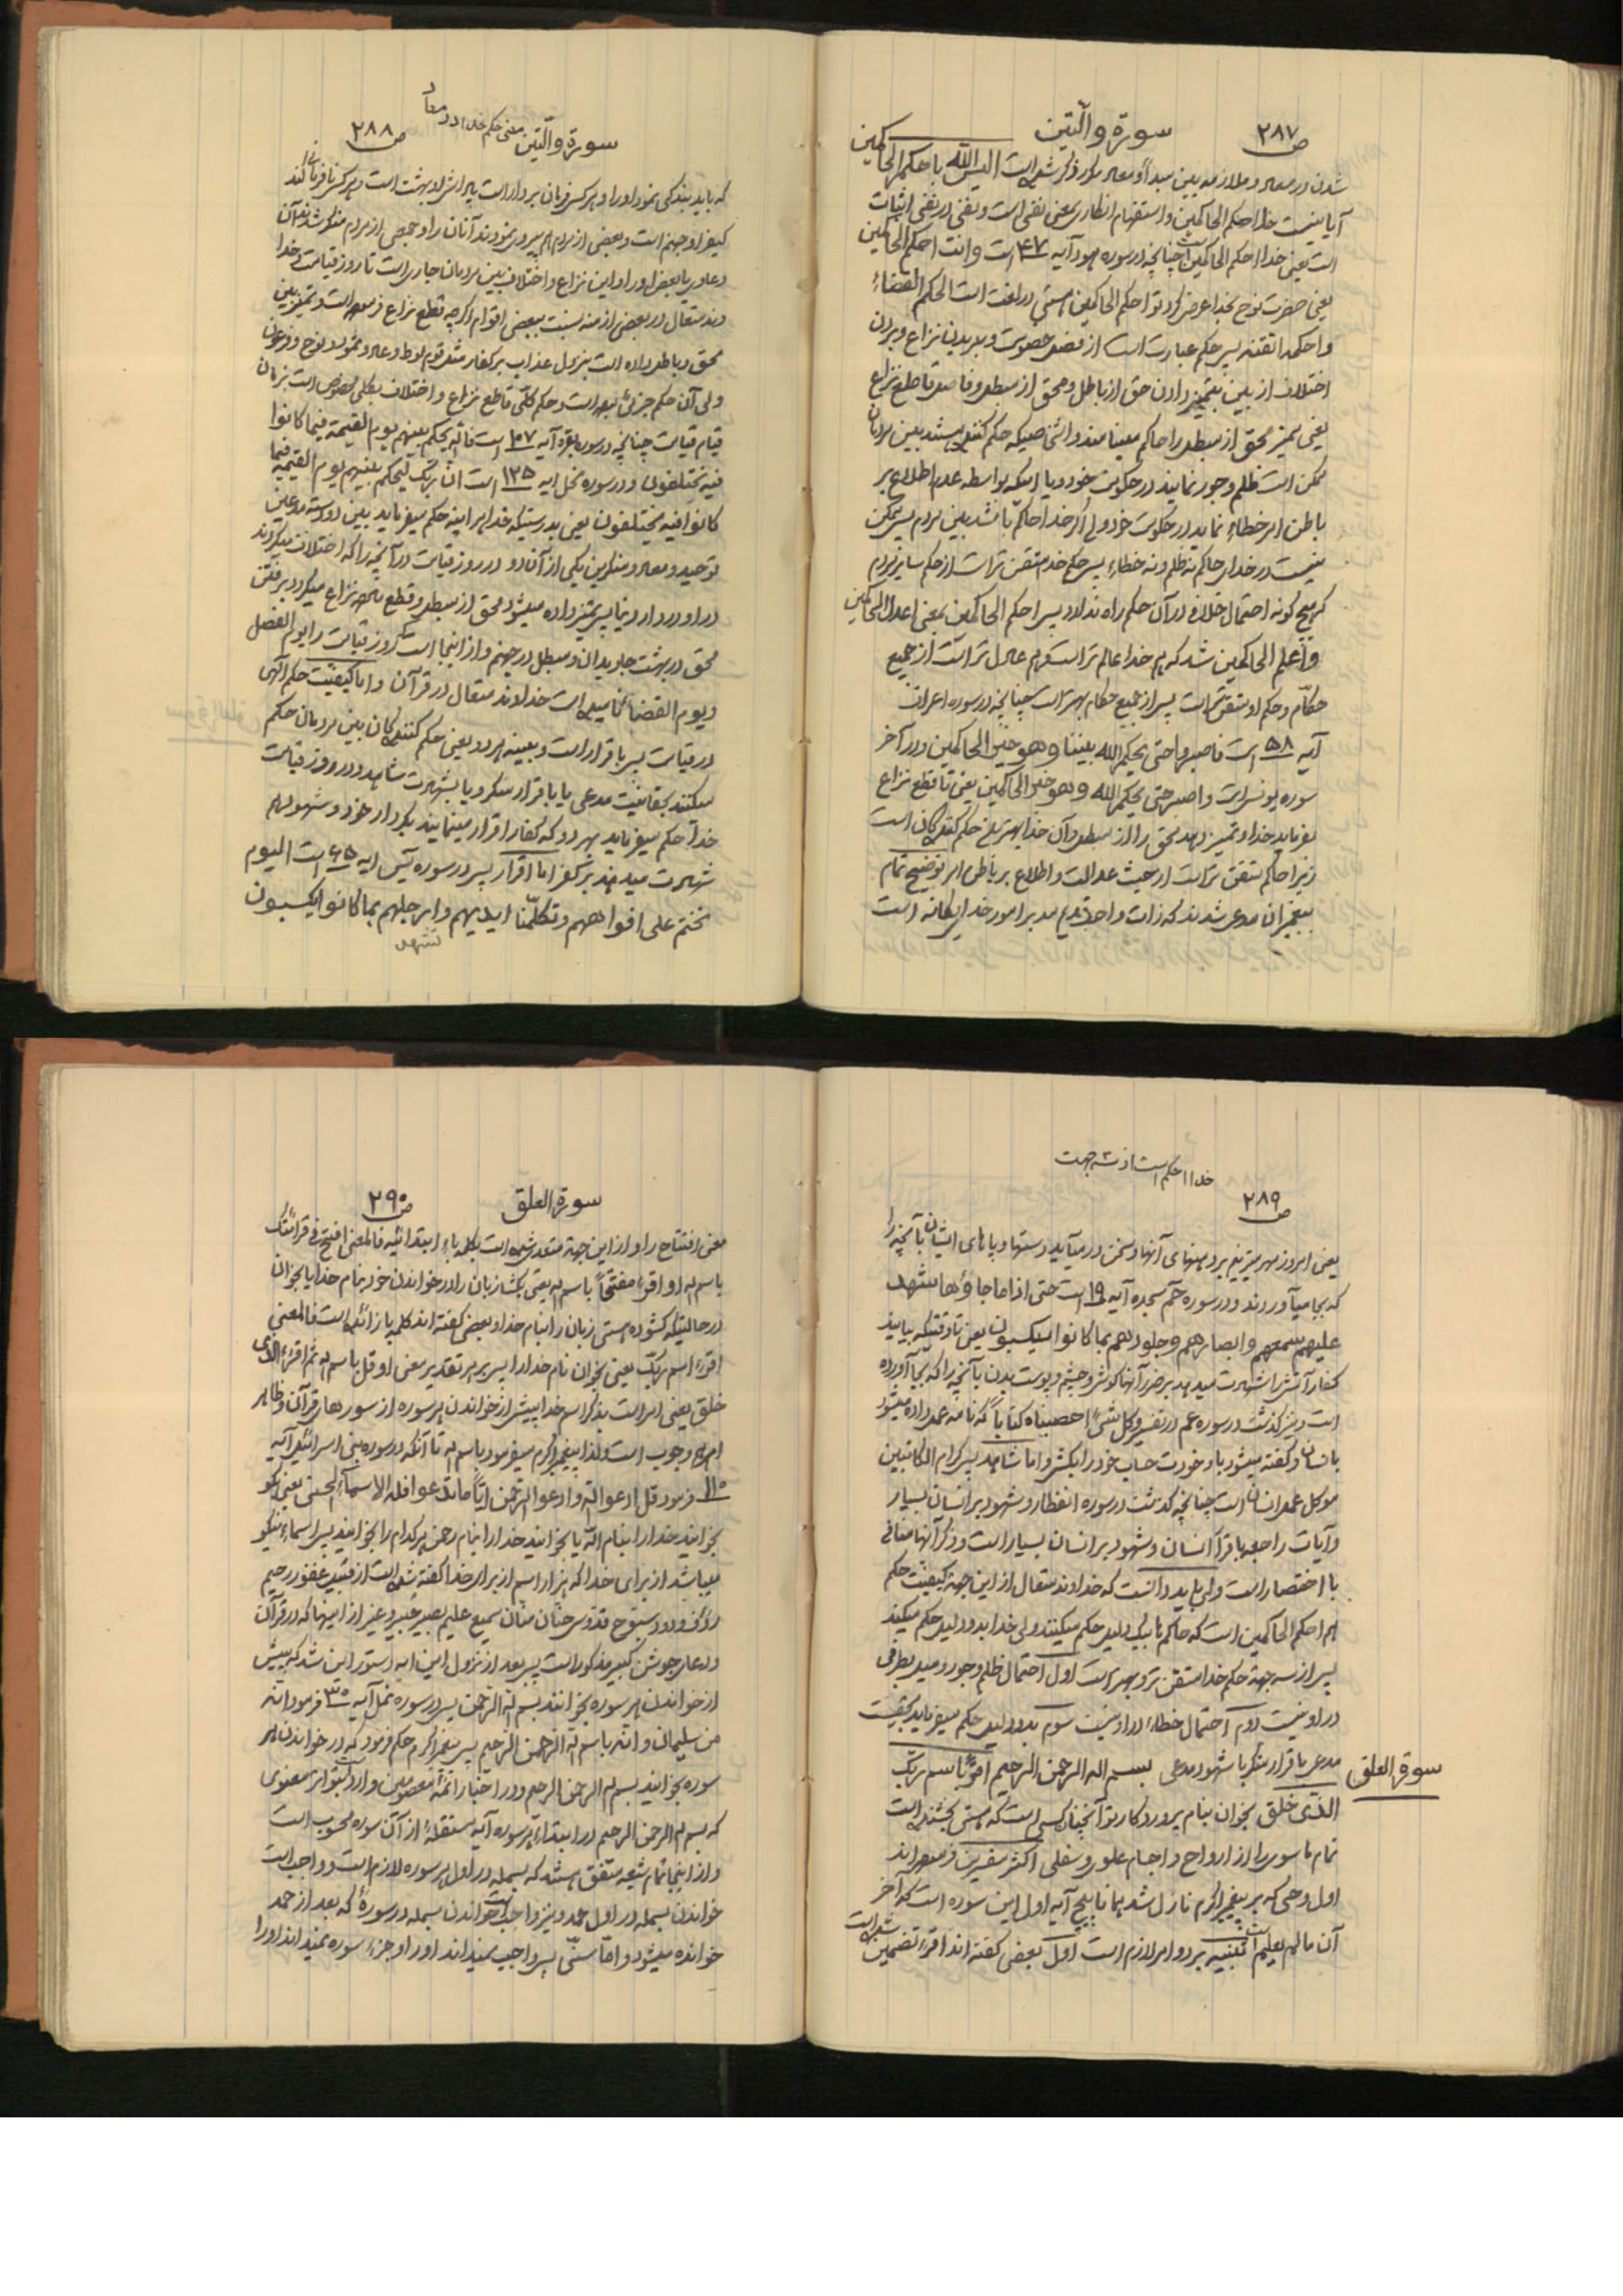 ص ۲۸۷
سورة والتین
شدن در معاد و ملازمه بین مبدأ و معاد مکرر ذکر شده است الیس الله باحکم الحاکمین
آیا نیست خدا احکم الحاکمین و استفهام انکاری بمعنی نفی است و نفی در نفی اثبات
است یعنی خدا احکم الحاکمین است چنانچه در سوره هود آیه ۴۷ است وانت احکم الحاکمین
یعنی حضرت نوح بخدا عرض کرد تو احکم الحاکمین هستی در لغت است الحکم القضاء
واحکمه اتقنه پس حکم عبارت است از فصل خصومت و بریدن نزاع و بردن
اختلاف از بین بتمیز دادن حق از باطل و محق از مبطل و فاصل قاطع نزاع
یعنی ممیز محق از مبطل را حاکم مینامند و اشخاصیکه حکم کننده هستند بین مردمان
ممکن است ظلم و جور نمایند در حکومت خود و یا اینکه بواسطه عدم اطلاع بر
باطن امر خطاء نماید در حکومت خود ولی اگر خدا حاکم باشد بین مردم پس ممکن
نیست در خدای حاکم نه ظلم و نه خطاء پس حکم خدا متقن تر است از حکم سایر مردم
که هیچ گونه احتمال خلاف در آن حکم راه ندارد پس احکم الحاکمین بمعنی اعدل الحاکمین
واعلم الحاکمین شد که هم خدا عالم تر است و هم عادل تر است از جمیع
حکّام و حکم او متقن تر است پس از جمیع حکام بهتر است چنانچه در سوره اعراف
آیه ۵۸ است فاصبروا حتی یحکم الله بیننا وهو خیر الحاکمین و در آخر
سوره یونس است واصبر حتی یحکم الله وهو خیر الحاکمین یعنی تا قطع نزاع
بفرماید خدا و تمیز دهد محق را از مبطل و آن خدا بهترین حکم کننده گان است
زیرا حاکم متقن تر است از حیث عدالت و اطلاع بر باطن امر توضیح تمام
پیغمبران مدعی شدند که ذات واحد قدیم مدبر امور خدای یگانه است
ص ۲۸۸
سورة والتین معنی حکم خدا در معاد
که باید بندگی نمود او را و هر کس فرمان بردار است پاداش او بهشت است و هر کس نافرمانی کند
کیفر او جهنم است و بعضی از مردم هم پیروی نمودند آنان را و جمعی از مردم منکر شدند آن
دعاوی یا بعض او را و این نزاع و اختلاف بین مردمان جاری است تا روز قیامت و خدا
وند متعال در بعضی ازمنه نسبت ببعضی اقوام اگر چه قطع نزاع فرموده است و تمیز بین
محق و باطل داده است بنزول عذاب بر کفار مثل قوم لوط و عاد و ثمود و نوح و فرعون
ولی آن حکم جزئی بوده است و حکم کلّی قاطع نزاع و اختلاف بکلی مخصوص است بزمان
قیام قیامت چنانچه در سوره بقره آیه ۱۰۷ است فالله یحکم بینهم یوم القیمة فیما کانوا
فیه یختلفون و در سوره نحل آیه ۱۲۵ است انّ ربک لیحکم بینهم یوم القیمة فیما
کانوا فیه یختلفون یعنی بدرستیکه خدا هر آینه حکم میفرماید بین دو دسته مدعین
توحید و معاد و منکرین یکی از آن دو در روز قیامت در آنچه را که اختلاف میکردند
در او در دار دنیا پس تمیز داده میشود محق از مبطل و قطع ماده نزاع میگردد برفتن
محق در بهشت جاویدان و مبطل در جهنم و از اینجا است که روز قیامت را یوم الفصل
و یوم القضاء نامیده است خداوند متعال در قرآن و اما کیفیّت حکم الهی
در قیامت پس باقرار است و ببینه هر دو یعنی حکم کننده گان بین مردمان حکم
میکنند بحقانیّت مدعی یا باقرار منکر و یا بشهادت شاهد و در روز قیامت
خدا حکم میفرماید بهر دو که کفار اقرار مینمایند بکردار خود و شهود هم
شهادت میدهند بر کفر اما اقرار پس در سوره یس آیه ۶۵ است الیوم
نختم علی افواههم وتکلّمنا ایدیهم وارجلهم بما کانوا یکسبون
تشهد
خدا احکم است از سه جهت
ص ۲۸۹
یعنی امروز مهر میزنیم بر دهنهای آنها و سخن در میآید دستها و پاهای ایشان بآنچه را
که بجا میآوردند و در سوره حم سجده آیه ۱۹ است حتی اذا ما جاؤها شهد
علیهم سمعهم وابصارهم وجلودهم بما کانوا یکسبون یعنی تا وقتیکه بیایند
کفار آتش را شهادت میدهد بر ضرر آنها گوش و چشم و پوست بدن بآنچه را که بجا آورده
است و نیز گذشت در سوره عم در تفسیر وکل شیء احصیناه کتاباً که نامه عمل داده میشود
بانسان و گفته میشود باو خودت حساب خود را بکش و اما شاهد پس کرام الکاتبین
موکل عمل انسان است چنانچه گذشت در سوره انفطار و شهود بر انسان بسیار
و آیات راجعه باقرار انسان و شهود بر انسان بسیار است و ذکر آنها منافی
با اختصار است ولی باید دانست که خداوند متعال از این جهة کیفیّت حکم
هم احکم الحاکمین است که حاکم با یک دلیل حکم میکنند ولی خدا بدو دلیل حکم میکند
پس از سه جهة حکم خدا متقن تر و بهتر است اول احتمال ظلم و جور و میل بطرفی
در او نیست دوم احتمال خطاء در او نیست سوم بدو دلیل حکم میفرماید بحقیت
مدعی باقرار منکر با شهود مدعی بسم الله الرحمن الرحیم اقرأ باسم ربّک
سورة العلق
الّذی خلق بخوان بنام پروردگار تو آنچنان کسی است که هستی بخشنده است
تمام ما سوی را از ارواح و اجسام علوی و سفلی اکثر مفسرین فرموده اند
اول وحی که بر پیغمبر اکرم نازل شد همانا پنج آیه اول این سوره است که آخر
آن مالم یعلم است تنبیه بر دو امر لازم است اول بعض گفته اند اقرء تضمین شده است
ص ۲۹۰
سورة العلق
معنی افتتاح را و از این جهة متعدی شده است بکلمه باء ابتدائیه فالمعنی افتح فی قرائتک
باسم الله او اقرء مفتتحاً باسم الله یعنی بگشا زبان را در خواندن خود بنام خدا یا بخوان
در حالتیکه گشوده هستی زبان را بنام خدا و بعضی گفته اند کلمه با زائده است فالمعنی
اقرء اسم ربّک یعنی بخوان نام خدا را پس بهر تقدیر معنی او قل باسم الله ثم اقرء الذی
خلق یعنی امر است بذکر اسم خدا پیش از خواندن هر سوره از سورهای قرآن و ظاهر
امر هم وجوب است ولذا پیغمبر اکرم میفرمود باسم الله تا آنکه در سوره بنی اسرائیل آیه
۱۱۰ فرمود قل ادعوا الله وادعوا الرّحمن ایّاً ما تدعوا فله الاسماء الحسنی یعنی بگو
بخوانید خدا را بنام الله یا بخوانید خدا را بنام رحمن هر کدام را بخوانید پس اسماء نیکو
میباشد از برای خدا که هزار اسم از برای خدا گفته شده است از قبیل غفور رحیم
رؤف ودود سبّوح قدّوس حنّان منّان سمیع علیم بصیر خبیر و غیر از اینها که در قرآن
و دعای جوشن کبیر مذکور است پس بعد از نزول این آیه دستور این شد که پیش
از خواندن هر سوره بخوانند بسم الله الرّحمن پس در سوره نمل آیه ۳۰ فرمود انه
من سلیمان وانه باسم الله الرّحمن الرّحیم پس پیغمبر اکرم حکم فرمود که در خواندن هر
سوره بخوانید بسم الله الرحمن الرحیم و در اخبار ائمّه معصومین وارد است بتواتر معنوی
که بسم الله الرحمن الرحیم در ابتداء هر سوره آیه مستقلة از آن سوره محسوب است
و از اینجا تمام شیعه متفق هستند که بسمله در اول هر سوره لازم است و واجب است
خواندن بسمله در اول حمد و نیز واجب است خواندن بسمله در سورۀ که بعد از حمد
خوانده میشود و امّا سنّی پس واجب نمیداند او را و جزء سوره نمیداند او را